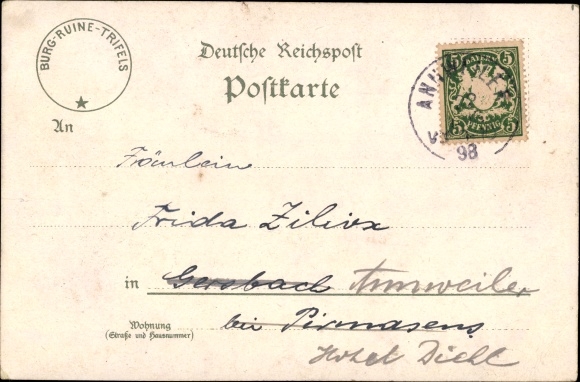 BURG-RUINE-TRIFELS
Deutsche Reichspost
Postkarte
BAYERN
5 5
5 5
PFENNIG
98
An
Fräulein
Frida Zilіox
in Gersbach Annweiler
Wohnung
(Straße und Hausnummer)
bei Pirmasens
Hotel Diehl